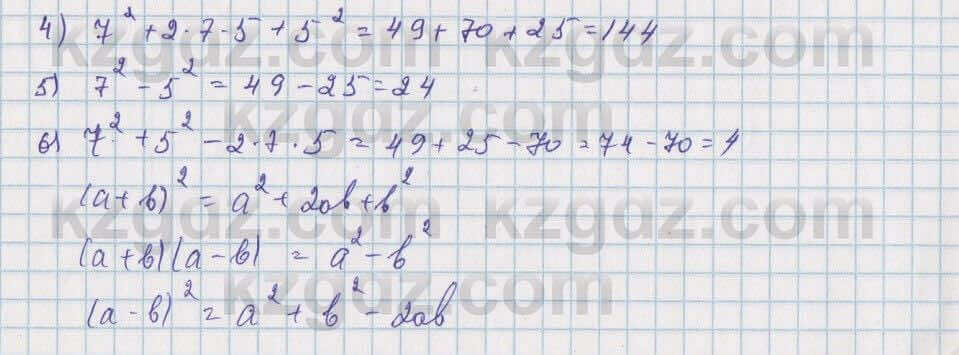 4) 7² + 2·7·5 + 5² = 49 + 70 + 25 = 144
5) 7² - 5² = 49 - 25 = 24
6) 7² + 5² - 2·7·5 = 49 + 25 - 70 = 74 - 70 = 4
(a+b)² = a² + 2ab + b²
(a+b)(a-b) = a² - b²
(a-b)² = a² + b² - 2ab
kzgdz.com kzgdz.com
kzgdz.com
kzgdz.com kzgdz.com
kzgdz.com